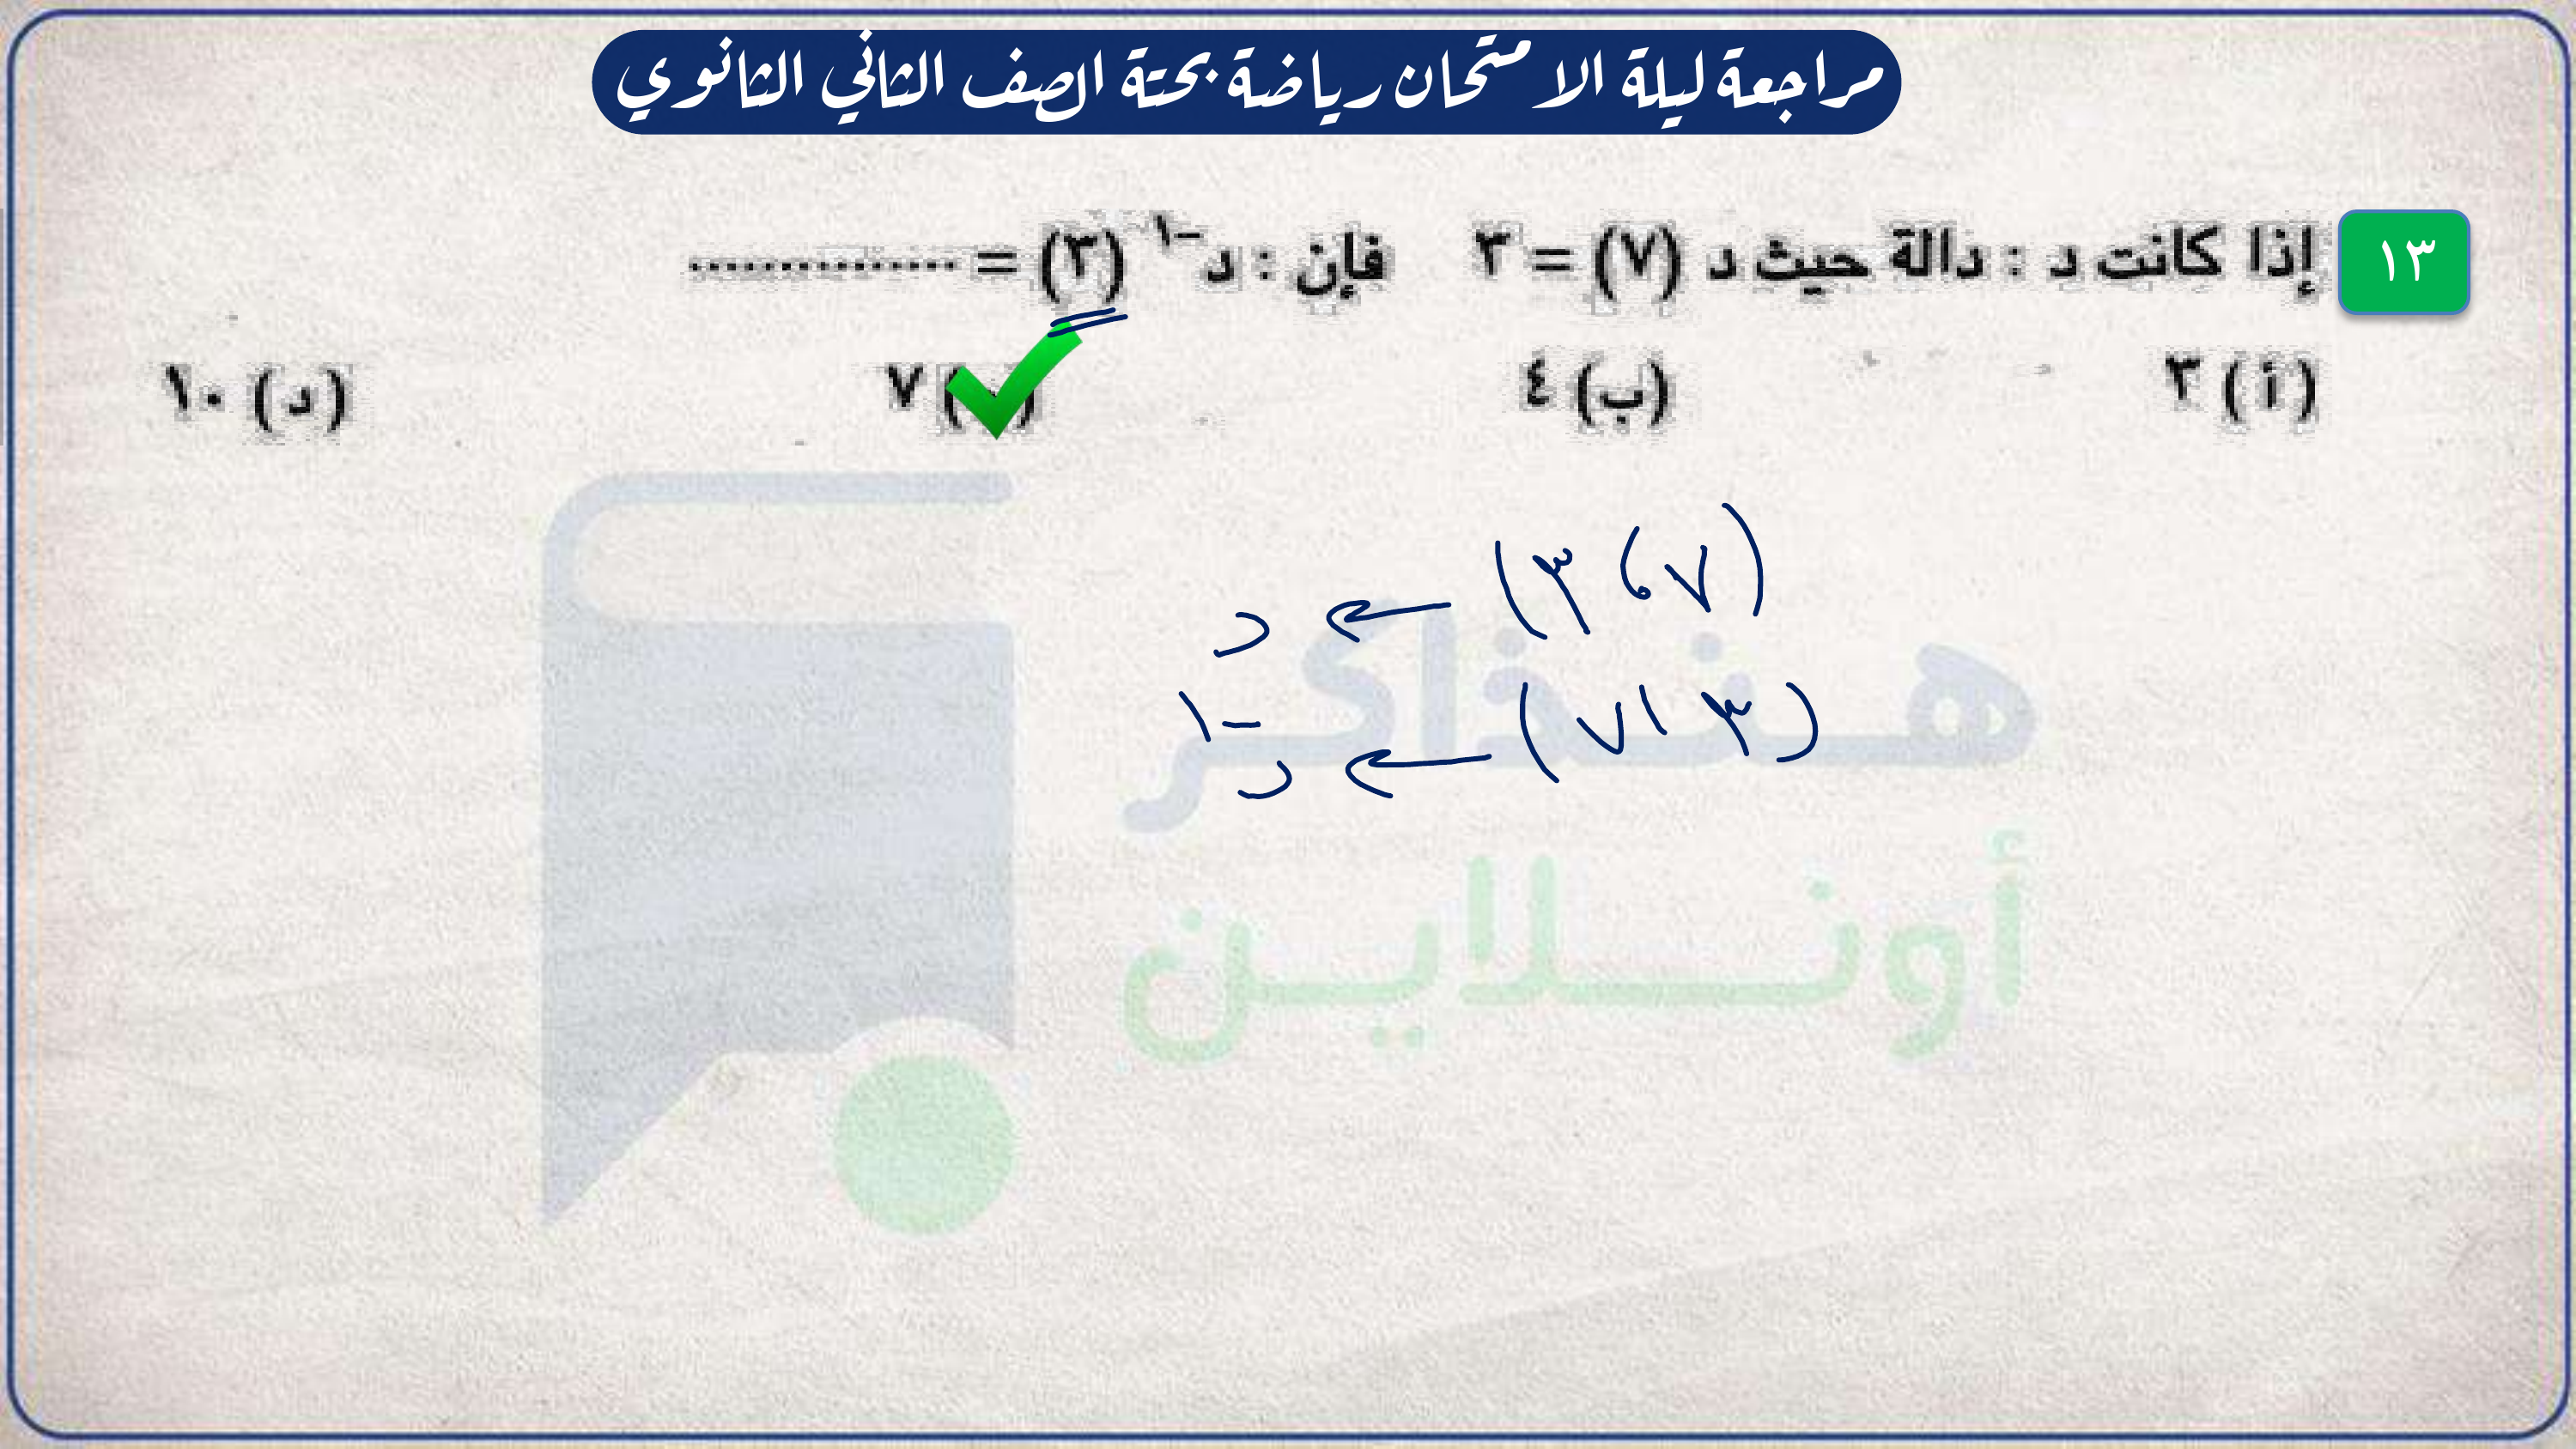 مراجعة ليلة الامتحان رياضة بحتة الصف الثاني الثانوي
١٣ إذا كانت د : دالة حيث د (٧) = ٣ فإن : د⁻¹ (٣) = ...............
(أ) ٣ (ب) ٤ ٧ (د) ١٠
(٧، ٣) ← د
(٣، ٧) ← د⁻¹
هنذاكر
أونلاين